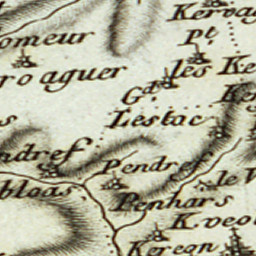 Kervag
omeur
Pt.
roaguer
lés Ke
Gd.
Lestac
Ker
ndref
Pendref
bloas
le V
Penhars
K.veo
Keregn